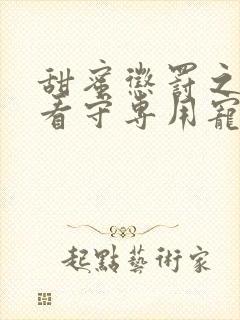 甜蜜懲罰之
看守專用寵
起點藝術家